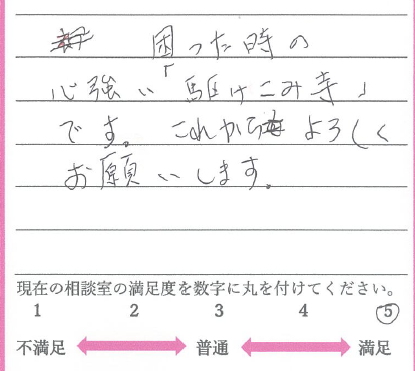 困った時の
心強い「駆けこみ寺」
です。これからもよろしく
お願いします。
現在の相談室の満足度を数字に丸を付けてください。
1 2 3 4 5
不満足 普通 満足